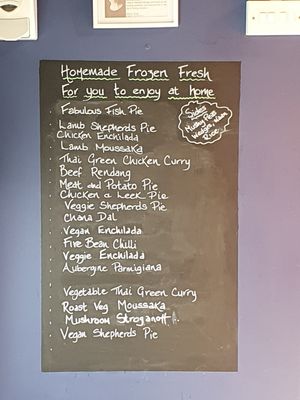 Homemade Frozen Fresh
For you to enjoy at home
Fabulous Fish Pie
Lamb Shepherds Pie
Chicken Enchilada
Lamb Moussaka
Thai Green Chicken Curry
Beef Rendang
Meat and Potato Pie
Chicken & Leek Pie
Veggie Shepherds Pie
Chana Dal
Vegan Enchilada
Five Bean Chilli
Veggie Enchilada
Aubergine Parmigiana
Vegetable Thai Green Curry
Roast Veg Moussaka
Mushroom Stroganoff
Vegan Shepherds Pie
Sides
Mushy Peas
Rice